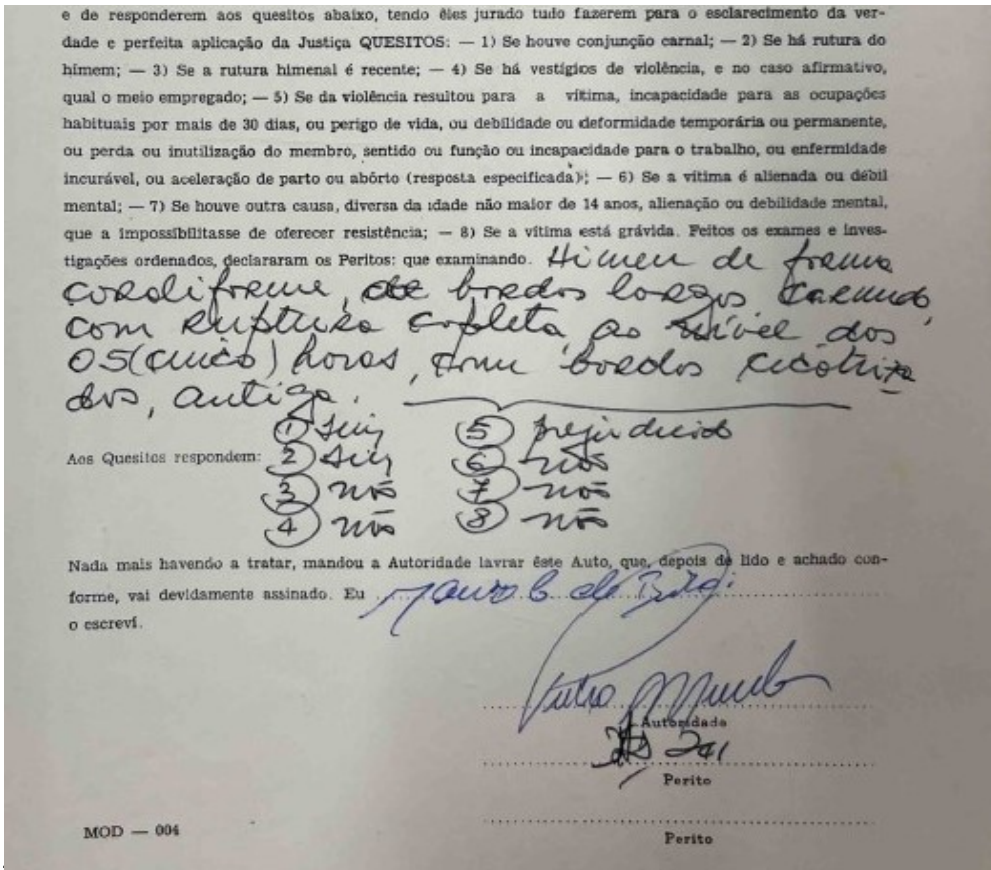 e de responderem aos quesitos abaixo, tendo êles jurado tudo fazerem para o esclarecimento da ver-
dade e perfeita aplicação da Justiça QUESITOS: — 1) Se houve conjunção carnal; — 2) Se há rutura do
himem; — 3) Se a rutura himenal é recente; — 4) Se há vestígios de violência, e no caso afirmativo,
qual o meio empregado; — 5) Se da violência resultou para a vítima, incapacidade para as ocupações
habituais por mais de 30 dias, ou perigo de vida, ou debilidade ou deformidade temporária ou permanente,
ou perda ou inutilização do membro, sentido ou função ou incapacidade para o trabalho, ou enfermidade
incurável, ou aceleração de parto ou abôrto (resposta especificada); — 6) Se a vítima é alienada ou débil
mental; — 7) Se houve outra causa, diversa da idade não maior de 14 anos, alienação ou debilidade mental,
que a impossibilitasse de oferecer resistência; — 8) Se a vítima está grávida. Feitos os exames e inves-
tigações ordenados, declararam os Peritos: que examinando. Himen de forma
cordiforme, de bordos largos carnudo,
com ruptura copleta, ao nível dos
05 (cinco) horas, com bordos cicatriza
dos, antiga.
① sim ⑤ prejudicid
Aos Quesitos respondem: ② sim ⑥ não
③ não ⑦ não
④ não ⑧ não
Nada mais havendo a tratar, mandou a Autoridade lavrar êste Auto, que, depois de lido e achado con-
forme, vai devidamente assinado. Eu
o escreví.
Autoridade
Perito
Perito
MOD — 004